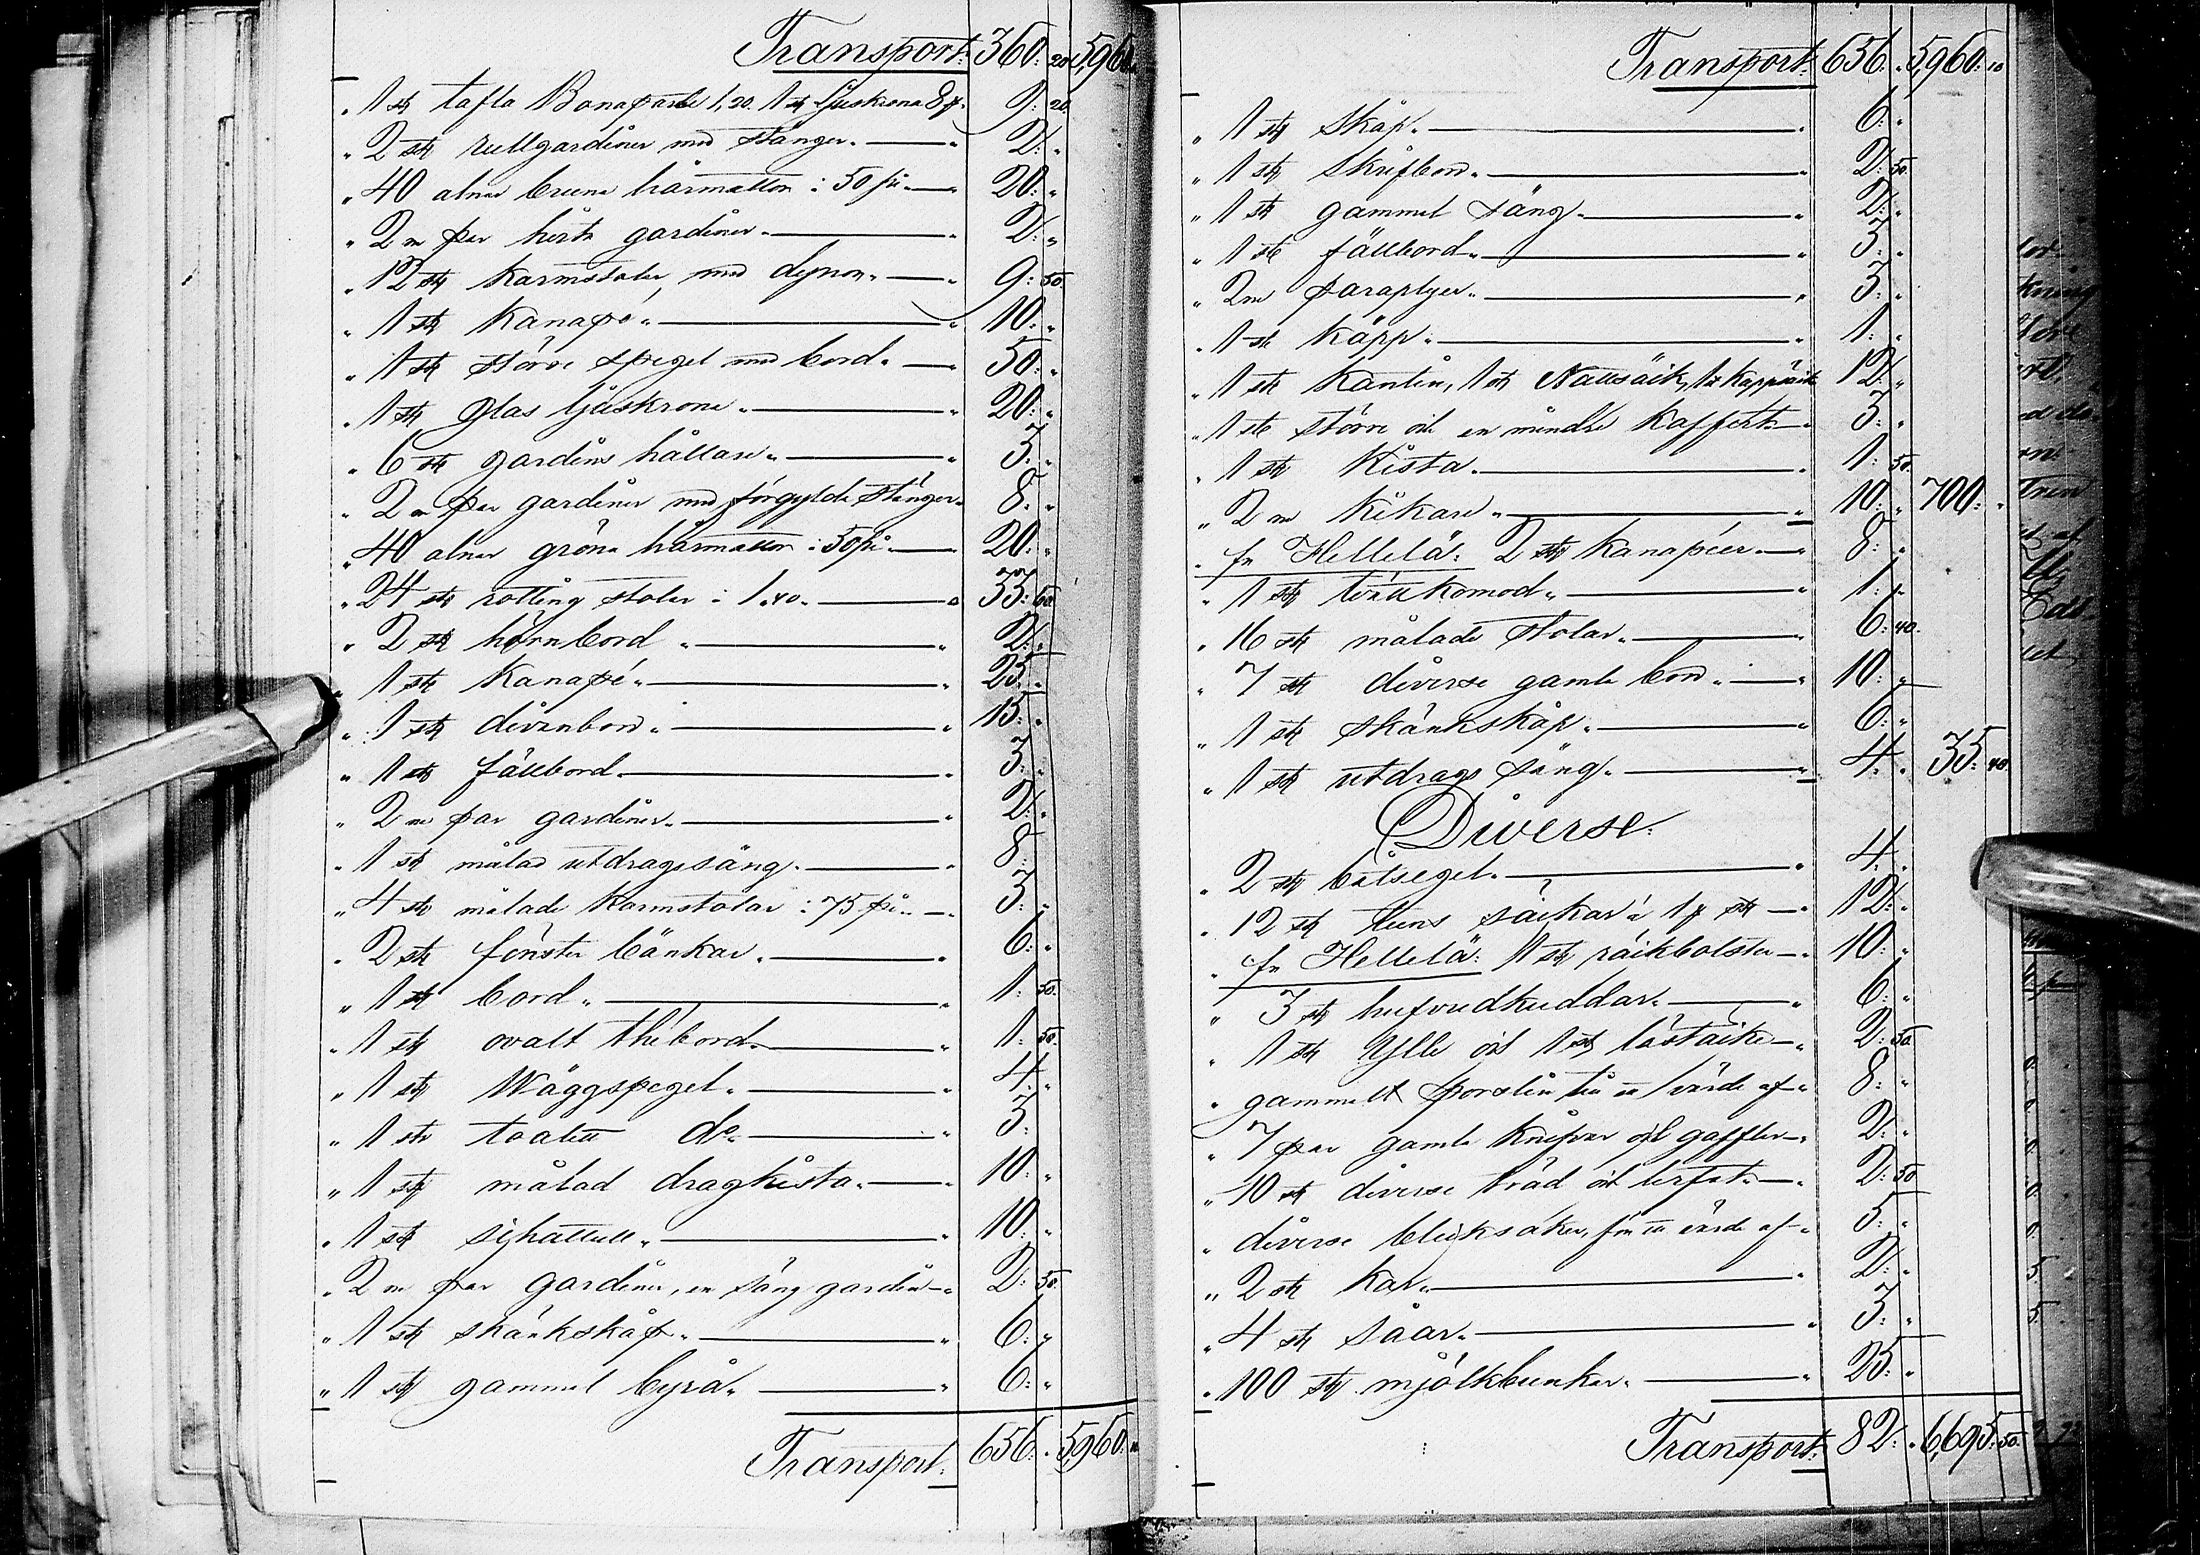 Transport. 360. 20 5,960. 10
" 1 st tafla Bonaparte 1,20. 1 st ljuskrona 8 f. 9. 20.
" 2 st rullgardiner med stänger. — " 2. "
" 40 alnar bruna hårmattor i 50 pi — " 20. "
" 2 ne par hvita gardiner. — " 2. "
" 12 st karmstolar, med dynor. — " 9. 50.
" 1 st Kanapé. — " 10. "
" 1 st större spegel med bord. — " 50. "
" 1 st glas ljuskrona. — " 20. "
" 6 st gardins hållare. — " 3. "
" 2 ne par gardiner med förgylda stänger. 8. "
" 40 alnar gröna hårmattor i 50 pi. — 20. "
" 24 st rotting stolar i 1.40. — " 33. 60
" 2 st hörnbord. — " 2. "
" 1 st Kanapé. — " 25. "
" 1 st divanbord. — " 15. "
" 1 st fällbord. — " 3. "
" 2 ne par gardiner. — " 2. "
" 1 st målad utdragssäng. — " 8.
" 4 st målade Karmstolar i 75 pi. — " 3. "
" 2 st fönster bänkar. — " 6. "
" 1 st bord. — " 1. 50.
" 1 st ovalt thébord. — " 1. 50.
" 1 st Wäggspegel. — " 4. "
" 1 st toalett do. — " 3.
" 1 st målad dragkista. — " 10. "
" 1 st sjhattull. — " 10. "
" 2 ne par gardiner, en säng gardin — " 2. 50.
" 1 st skänkskåp. — " 6. "
" 1 st gammal byrå. — " 6. "
Transport. 656. " 5,960. 10
Transport. 656. " 5,960. 10
" 1 st skåp. — " 6. "
" 1 st Skrifbord. — " 2. 50.
" 1 st gammal säng. — " 2. "
" 1 st fällbord. — " 3. "
" 2 ne paraplyer. — " 3. "
" 1 st Käpp. — " 1. "
" 1 st Kantin, 1 st Nattsäck, 1 st Kappsäck 12. "
" 1 st större och en mindre Koffert — " 3. "
" 1 st Kista. — " 1. 50.
" 2 ne Kikare. — " 10. " 700. "
" fr Hellelä: 2 st Kanapéer. — " 8. "
" 1 st tvättkomod. — " 1. "
" 16 st målade stolar. — " 6. 40.
" 7 st diverse gamla bord. — " 10. "
" 1 st skänkskåp. — " 6. "
" 1 st utdrags säng. — " 4. " 35. 40.
Diverse.
" 2 st båtsegel. — " 4. "
" 12 st säckar à 1 f st — " 12. "
" fr Hellelä: 1 st — " 10. "
" 3 st hufvudkuddar. — " 6. "
" 1 st Ylle och 1 st — " 2. 50
" gammalt porslin till ett värde af — " 8. "
" 7 par gamla Knifvar och gafflar — " 2. "
" 10 st diverse träd och lerfat. — " 2. 50
" diverse blecksaker, för ett värde af — " 5. "
" 2 st Kar. — " 2. "
" 4 st såar. — " 3. "
" 100 st mjölkbunkar. — " 25. "
Transport. 82. " 6,695. 50.